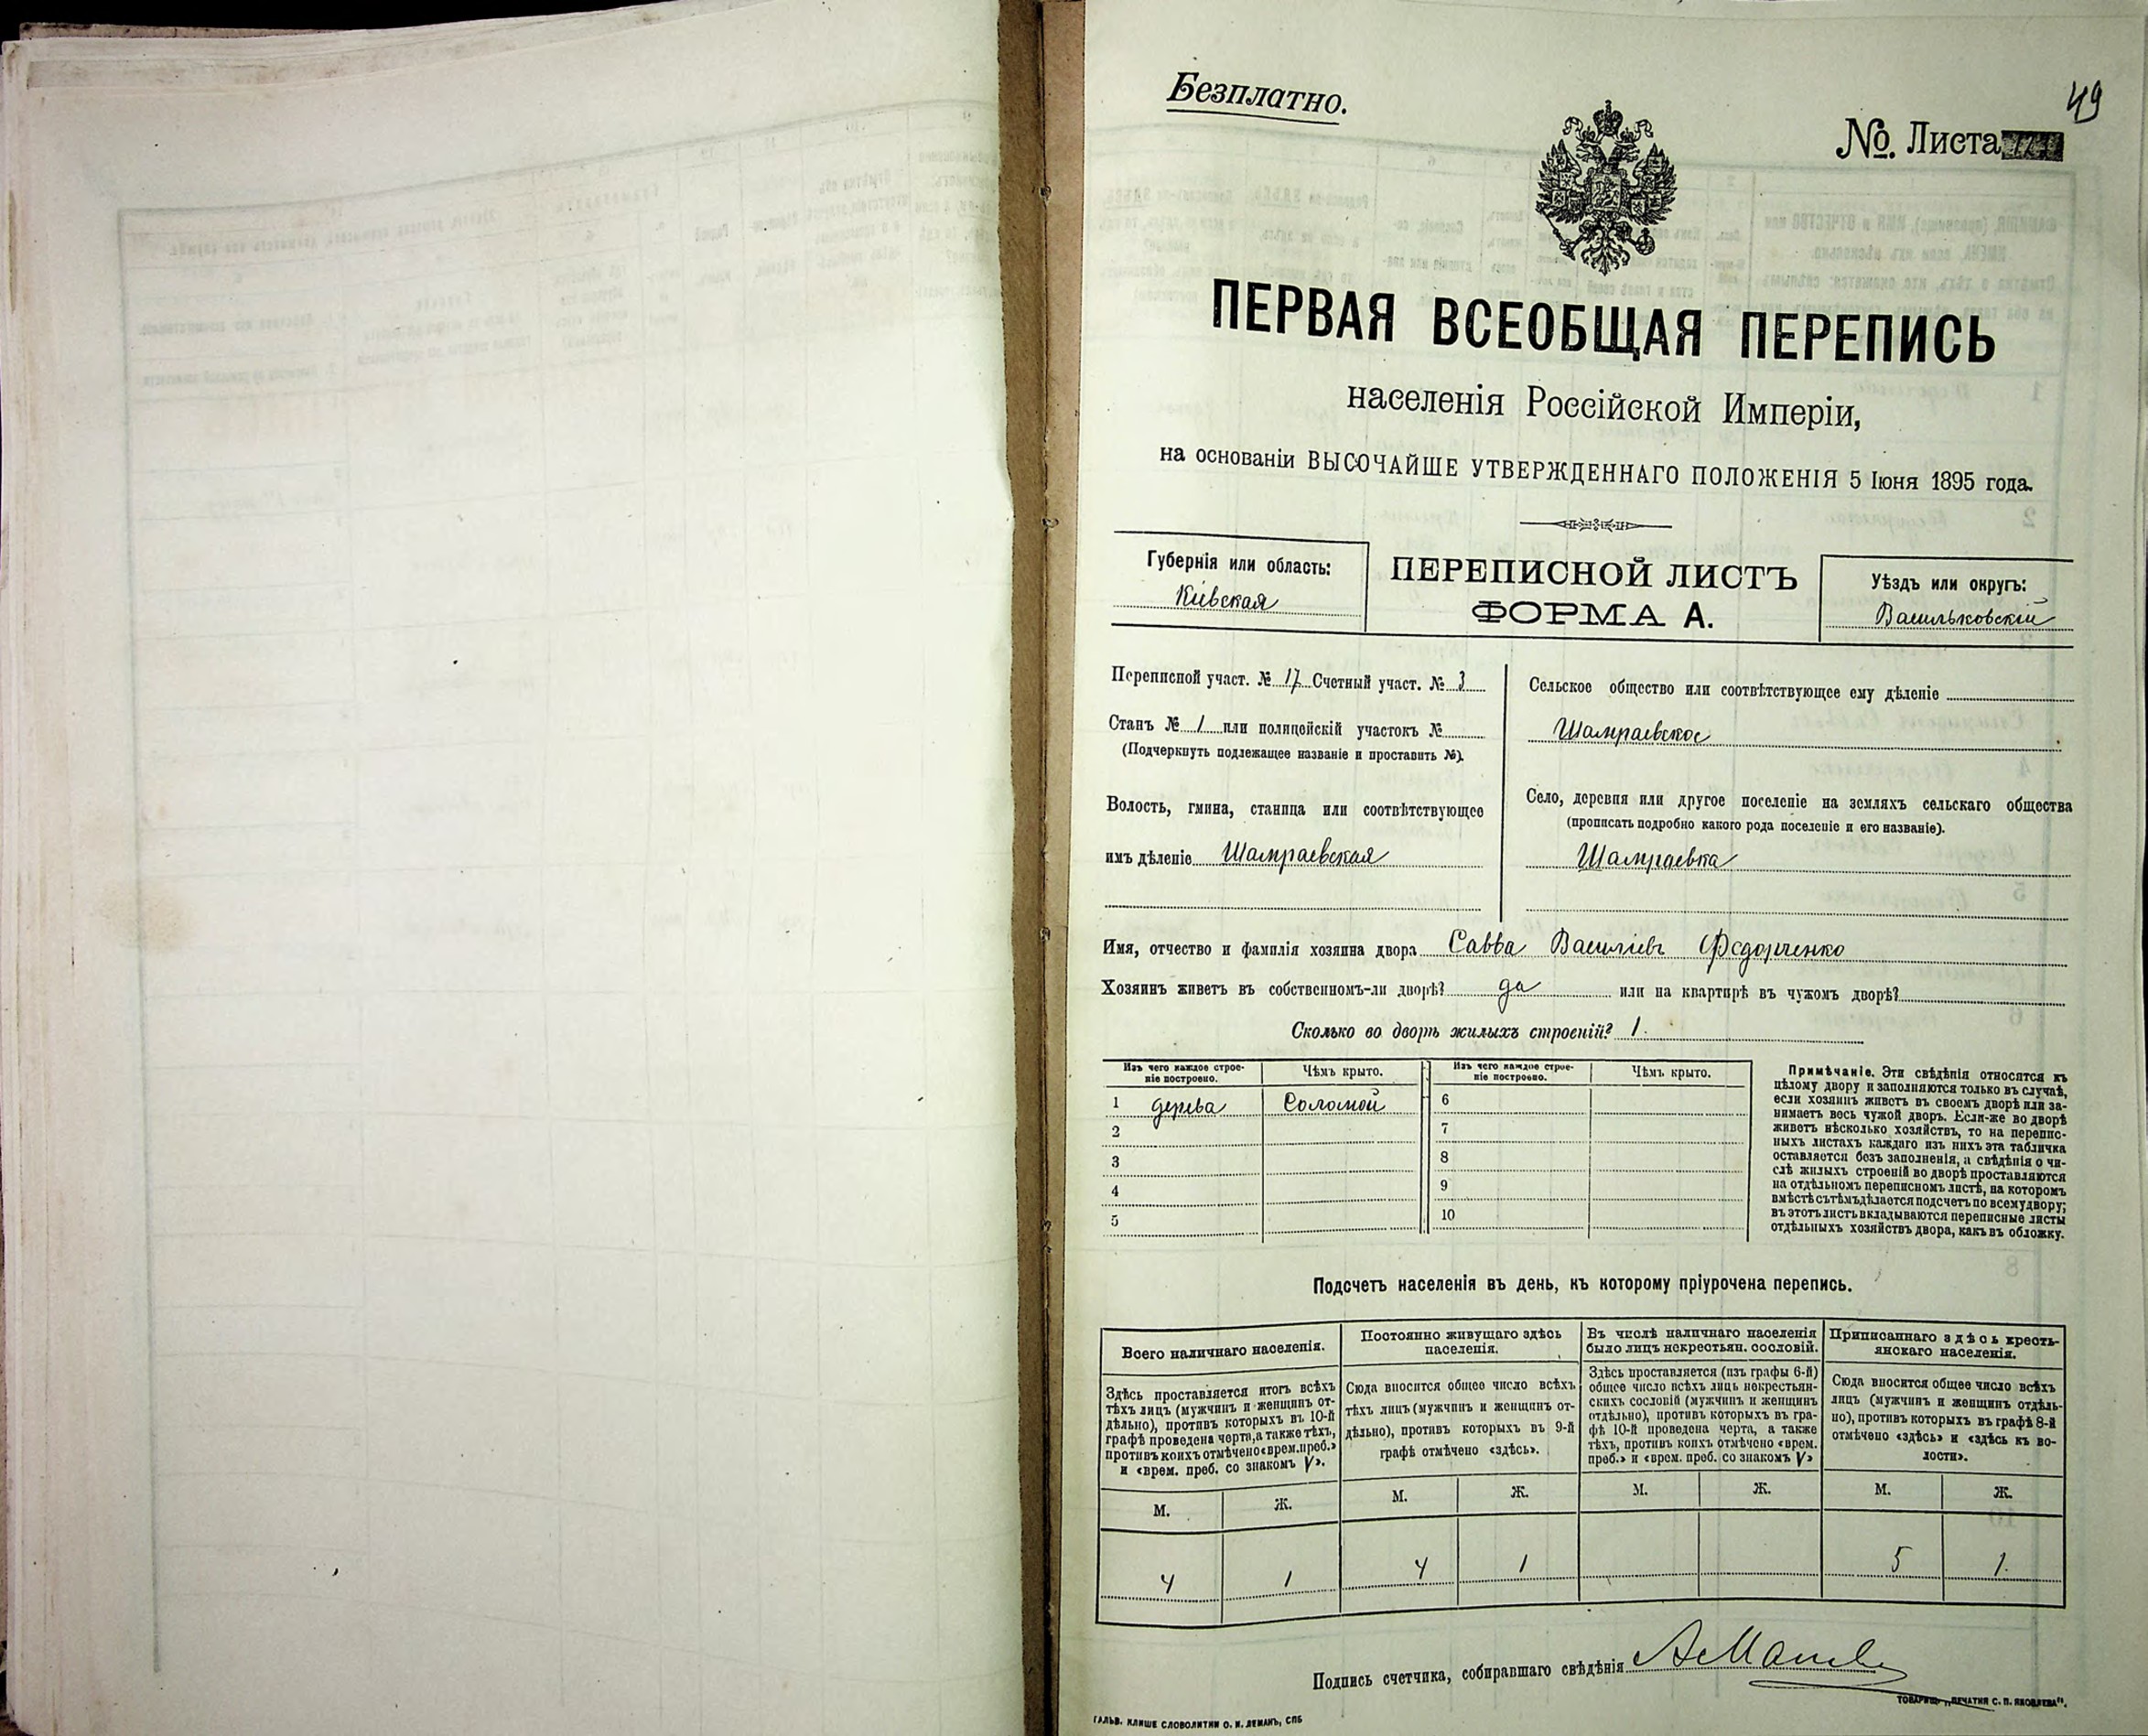 Безплатно.
49
№. Листа
ПЕРВАЯ ВСЕОБЩАЯ ПЕРЕПИСЬ
населенія Россійской Имперіи,
на основаніи ВЫСОЧАЙШЕ УТВЕРЖДЕННАГО ПОЛОЖЕНІЯ 5 Іюня 1895 года.
Губернія или область:
Кіевская
ПЕРЕПИСНОЙ ЛИСТЪ
ФОРМА А.
Уѣздъ или округъ:
Васильковскій
Переписной участ. № 17 Счетный участ. № 3
Станъ № 1 или полицейскій участокъ №
(Подчеркнуть подлежащее названіе и проставить №).
Волость, гмина, станица или соотвѣтствующее
имъ дѣленіе Шамраевская
Сельское общество или соотвѣтствующее ему дѣленіе
Шамраевское
Село, деревня или другое поселеніе на земляхъ сельскаго общества
(прописать подробно какого рода поселеніе и его названіе).
Шамраевка
Имя, отчество и фамилія хозяина двора Савва Василіевъ Федорченко
Хозяинъ живетъ въ собственномъ-ли дворѣ? да или на квартирѣ въ чужомъ дворѣ?
Сколько во дворѣ жилыхъ строеній? 1.
Изъ чего каждое строе-
ніе построено.
Чѣмъ крыто.
Изъ чего каждое строе-
ніе построено.
Чѣмъ крыто.
1 дерева Соломой 6
2 7
3 8
4 9
5 10
Примѣчаніе. Эти свѣдѣнія относятся къ
цѣлому двору и заполняются только въ случаѣ,
если хозяинъ живетъ въ своемъ дворѣ или за-
нимаетъ весь чужой дворъ. Если-же во дворѣ
живетъ нѣсколько хозяйствъ, то на перепис-
ныхъ листахъ каждаго изъ нихъ эта табличка
оставляется безъ заполненія, а свѣдѣнія о чи-
слѣ жилыхъ строеній во дворѣ проставляются
на отдѣльномъ переписномъ листѣ, на которомъ
вмѣстѣ съ тѣмъ дѣлается подсчетъ по всему двору;
въ этотъ листъ вкладываются переписные листы
отдѣльныхъ хозяйствъ двора, какъ въ обложку.
Подсчетъ населенія въ день, къ которому пріурочена перепись.
Всего наличнаго населенія.
Здѣсь проставляется итогъ всѣхъ
тѣхъ лицъ (мужчинъ и женщинъ от-
дѣльно), противъ которыхъ въ 10-й
графѣ проведена черта, а также тѣхъ,
противъ коихъ отмѣчено «врем. преб.»
и «врем. преб. со знакомъ V».
Постоянно живущаго здѣсь
населенія.
Сюда вносится общее число всѣхъ
тѣхъ лицъ (мужчинъ и женщинъ от-
дѣльно), противъ которыхъ въ 9-й
графѣ отмѣчено «здѣсь».
Въ числѣ наличнаго населенія
было лицъ некрестьян. сословій.
Здѣсь проставляется (изъ графы 6-й)
общее число всѣхъ лицъ некрестьян-
скихъ сословій (мужчинъ и женщинъ
отдѣльно), противъ которыхъ въ гра-
фѣ 10-й проведена черта, а также
тѣхъ, противъ коихъ отмѣчено «врем.
преб.» и «врем. преб. со знакомъ V»
Приписаннаго здѣсь кресть-
янскаго населенія.
Сюда вносится общее число всѣхъ
лицъ (мужчинъ и женщинъ отдѣль-
но), противъ которыхъ въ графѣ 8-й
отмѣчено «здѣсь» и «здѣсь къ во-
лости».
М. Ж. М. Ж. М. Ж. М. Ж.
4 1 4 1 5 1.
Подпись счетчика, собиравшаго свѣдѣнія
ГАЛЬВ. КЛИШЕ СЛОВОЛИТНИ О. И. ЛЕМАНЪ, СПБ
ТОВАРИЩ. „ПЕЧАТНЯ С. П. ЯКОВЛЕВА".